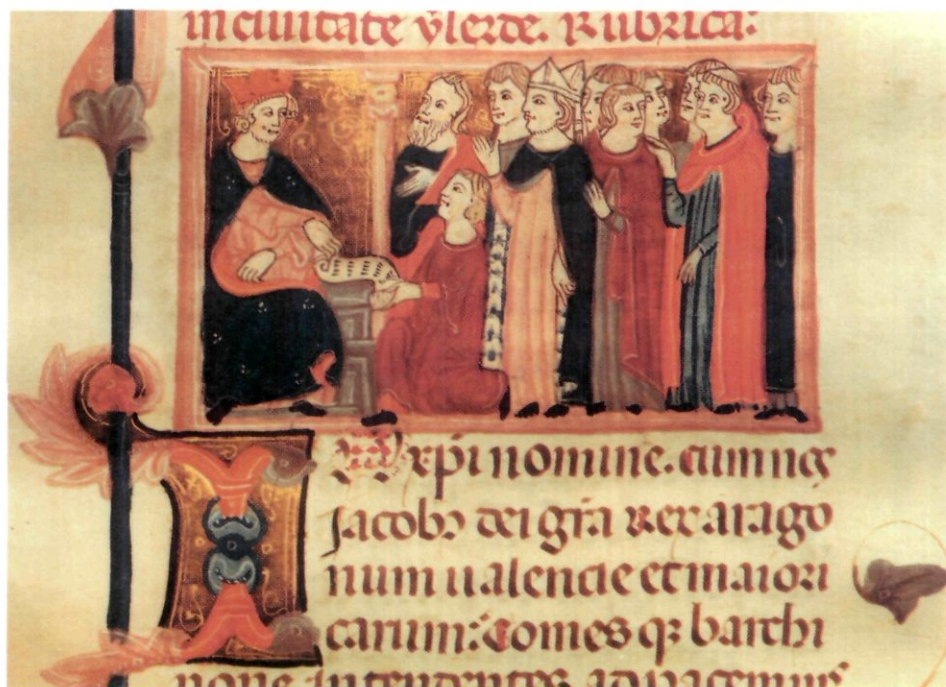 in ciuitate ylerde. Rubrica:
In xp̄i nomine. cum nos
Jacobꝰ dei gr̄a Rex arago
num ualencie et maiori
carum: Comes qꝫ barchi
none Intendentes